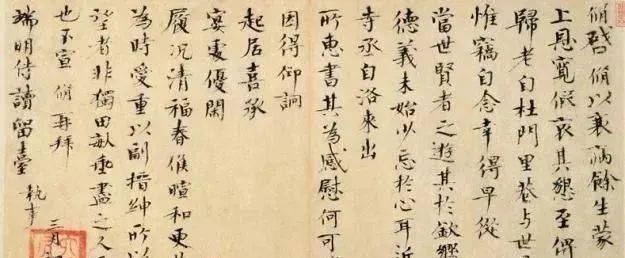 脩啓脩以衰病餘生蒙
上恩寬假哀其懇至俾
歸老自杜門里巷與世
惟竊自念幸得早從
當世賢者之遊其於欽嚮
德義未始少忘於心耳近
寺丞自洛來出
所惠書其為感慰何可
因得仰詢
起居喜承
宴處優閑
履況清福春候暄和更
為時愛重以副搢紳所以
望者非獨田畝垂盡之人
也不宣 脩再拜
端明侍讀留臺 執事
三月